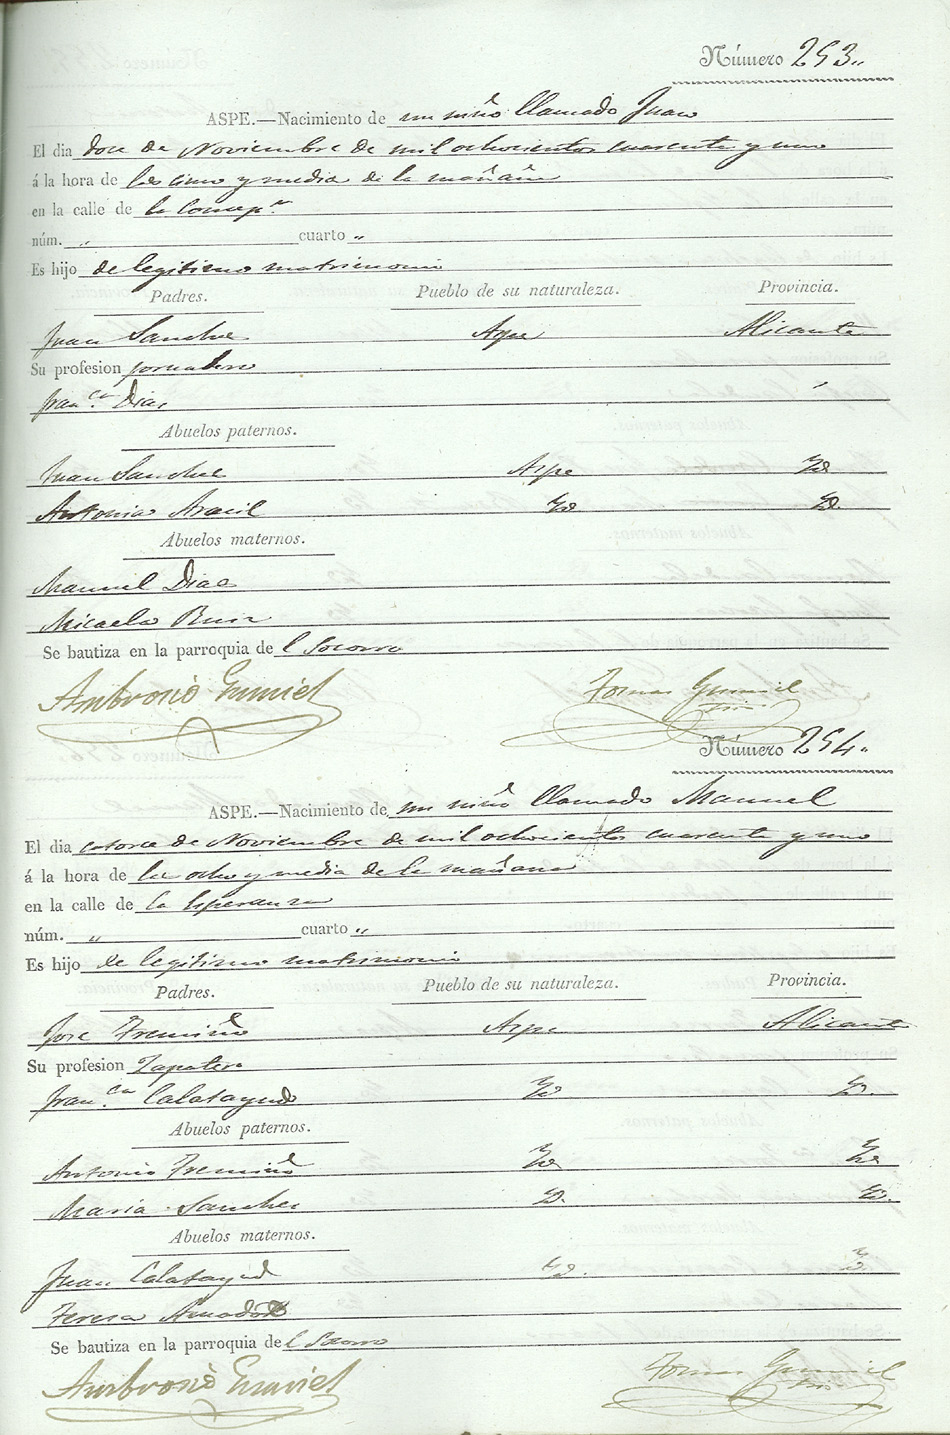 Número 253.
ASPE.—Nacimiento de un niño llamado Juan
El dia doce de Noviembre de mil ochocientos cuarenta y uno
á la hora de las cinco y media de la mañana
en la calle de la Concep.n
núm. „ cuarto „
Es hijo de legitimo matrimonio
Padres. Pueblo de su naturaleza. Provincia.
Juan Sanchez Aspe Alicante
Su profesion jornalero
Fran.ca Diaz
Abuelos paternos.
Juan Sanchez Aspe Yd
Antonia Aracil Yd Yd.
Abuelos maternos.
Manuel Diaz
Micaela Ruiz
Se bautiza en la parroquia de l Socorro
Ambrosio Gumiel Tomas Gumiel
Número 254.
ASPE.—Nacimiento de un niño llamado Manuel
El dia catorce de Noviembre de mil ochocientos cuarenta y uno
á la hora de las ocho y media de la mañana
en la calle de la Esperanza
núm. „ cuarto „
Es hijo de legitimo matrimonio
Padres. Pueblo de su naturaleza. Provincia.
Jose Tremiño Aspe Alicante
Su profesion Zapatero
Fran.ca Calatayud Yd Yd.
Abuelos paternos.
Antonio Tremiño Yd Yd
Maria Sanchez Yd. Yd.
Abuelos maternos.
Juan Calatayud Yd. Yd.
Teresa Amador
Se bautiza en la parroquia de l Socorro
Ambrosio Gumiel Tomas Gumiel